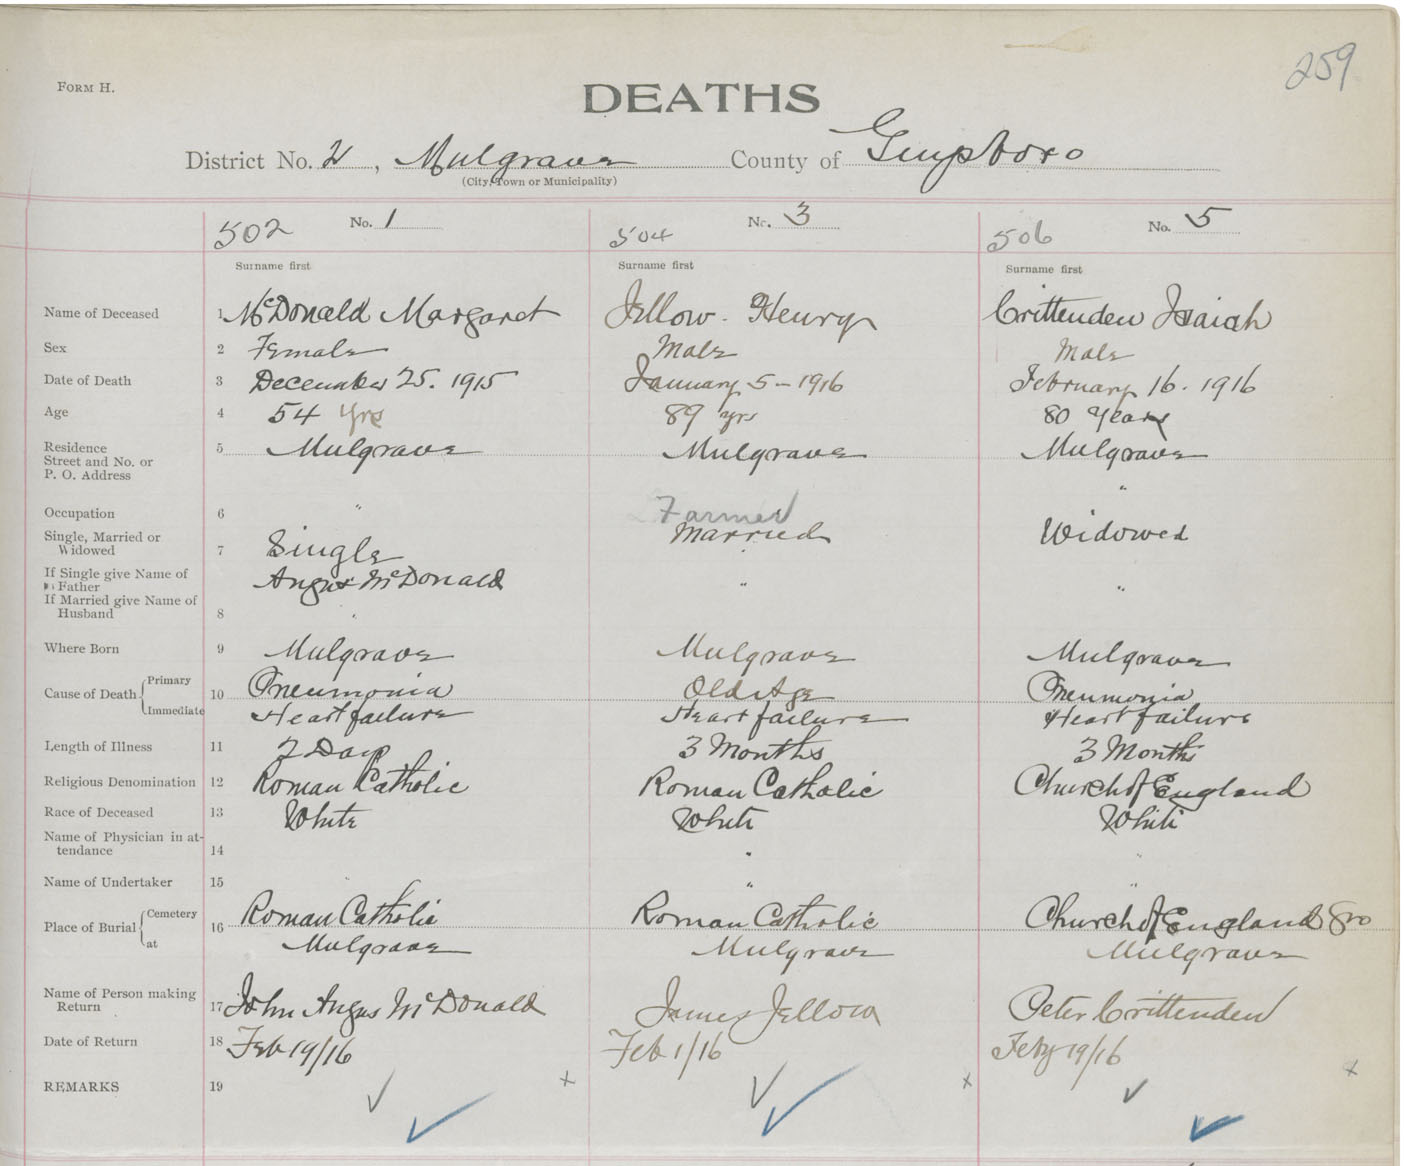 259
FORM H.
DEATHS
District No. 2, Mulgrave County of Guysboro
(City, Town or Municipality)
502 No. 1 504 No. 3 506 No. 5
Surname first Surname first Surname first
Name of Deceased 1 McDonald Margaret Jellow. Henry Crittenden Isaiah
Sex 2 Female Male Male
Date of Death 3 December 25. 1915 January 5 - 1916 February 16. 1916
Age 4 54 yrs 89 yrs 80 Years
Residence 5 Mulgrave Mulgrave Mulgrave
Street and No. or
P. O. Address
Occupation 6 " Farmer "
Single, Married or 7 Single Married Widowed
Widowed
If Single give Name of Angus McDonald " "
Father
If Married give Name of
Husband 8 "
Where Born 9 Mulgrave Mulgrave Mulgrave
Cause of Death Primary 10 Pneumonia Old Age Pneumonia
Immediate Heart failure Heart failure Heart failure
Length of Illness 11 2 Days 3 Months 3 Months
Religious Denomination 12 Roman Catholic Roman Catholic Church of England
Race of Deceased 13 White White White
Name of Physician in at- 14 " "
tendance
Name of Undertaker 15 " " "
Place of Burial Cemetery 16 Roman Catholic Roman Catholic Church of England
at Mulgrave Mulgrave Mulgrave
Name of Person making 17 John Angus McDonald James Jellow Peter Crittenden
Return
Date of Return 18 Feb 19/16 Feb 1/16 Feby 19/16
REMARKS 19 x x x